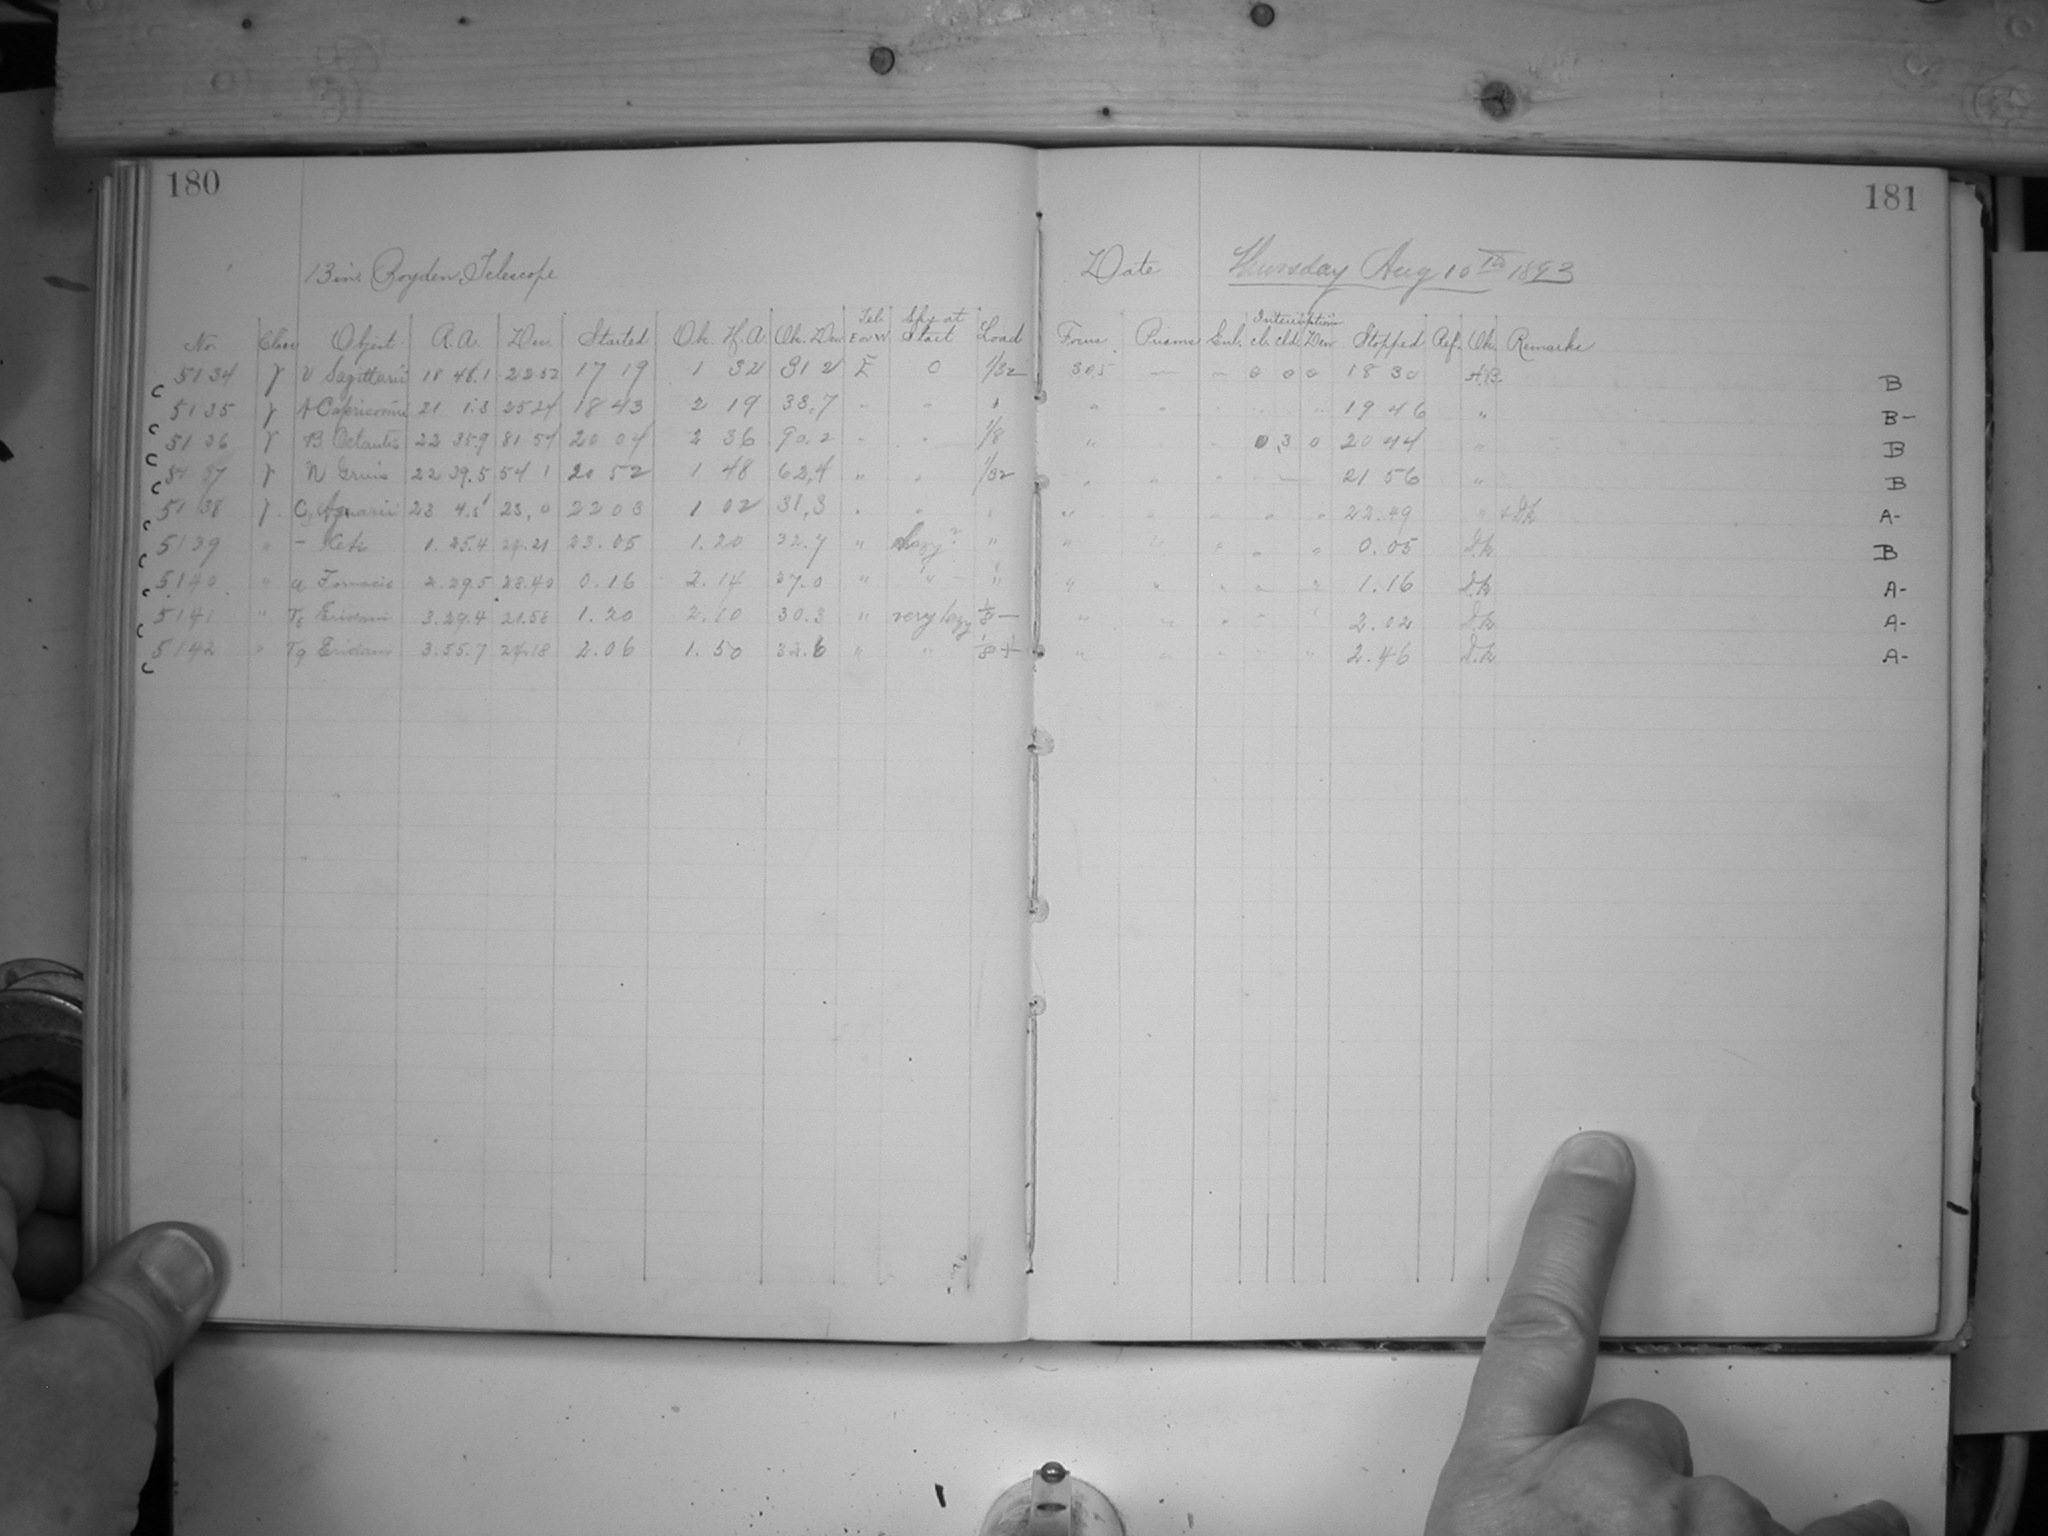 180
13 in. Boyden Telescope
No. Class Object R.A. Dec. Started Ob. H.A. Ob. Dec. Tel. E or W Sky at Start Load
5134 γ V Sagittarii 18 48.1 -22 52 17 19 1 32 31 2 E 0 1/32
5135 γ A Capricorni 21 1.3 25 24 18 43 2 19 33.7 " "
5136 γ B Octantis 22 35.9 81 54 20 04 2 36 90.2 " " 1/8
5137 γ N Gruis 22 39.5 54 1 20 52 1 48 62.4 " " 1/32
5138 γ Aquarii 23 4.5 23.0 22 03 1 02 31.3 " "
5139 " - Ceti 0. 25.4 24.21 23.05 1.20 32.7 " hazy? "
5140 " Fornacis 2.29.5 28.40 0.16 2.14 37.0 " " "
5141 " T6 Eridani 3.29.4 21.56 1.20 2.10 30.3 " very hazy 1/8 -
5142 " T9 Eridani 3.55.7 24.18 2.06 1.50 32.6 " " 1/8 +
181
Date Thursday Aug 10th 1893
Focus Prisms Enl. Interruptions cl. cld. Dew Stopped Ref. Ob. Remarks
30.5 — — 0 0 0 18 30 A.B. B
" " 19 46 " B-
" 0 3 0 20 44 " B
" 21 56 " B
" 22.49 " A-
" 0.05 B
" 1.16 A-
" 2.02 A-
" 2.46 A-